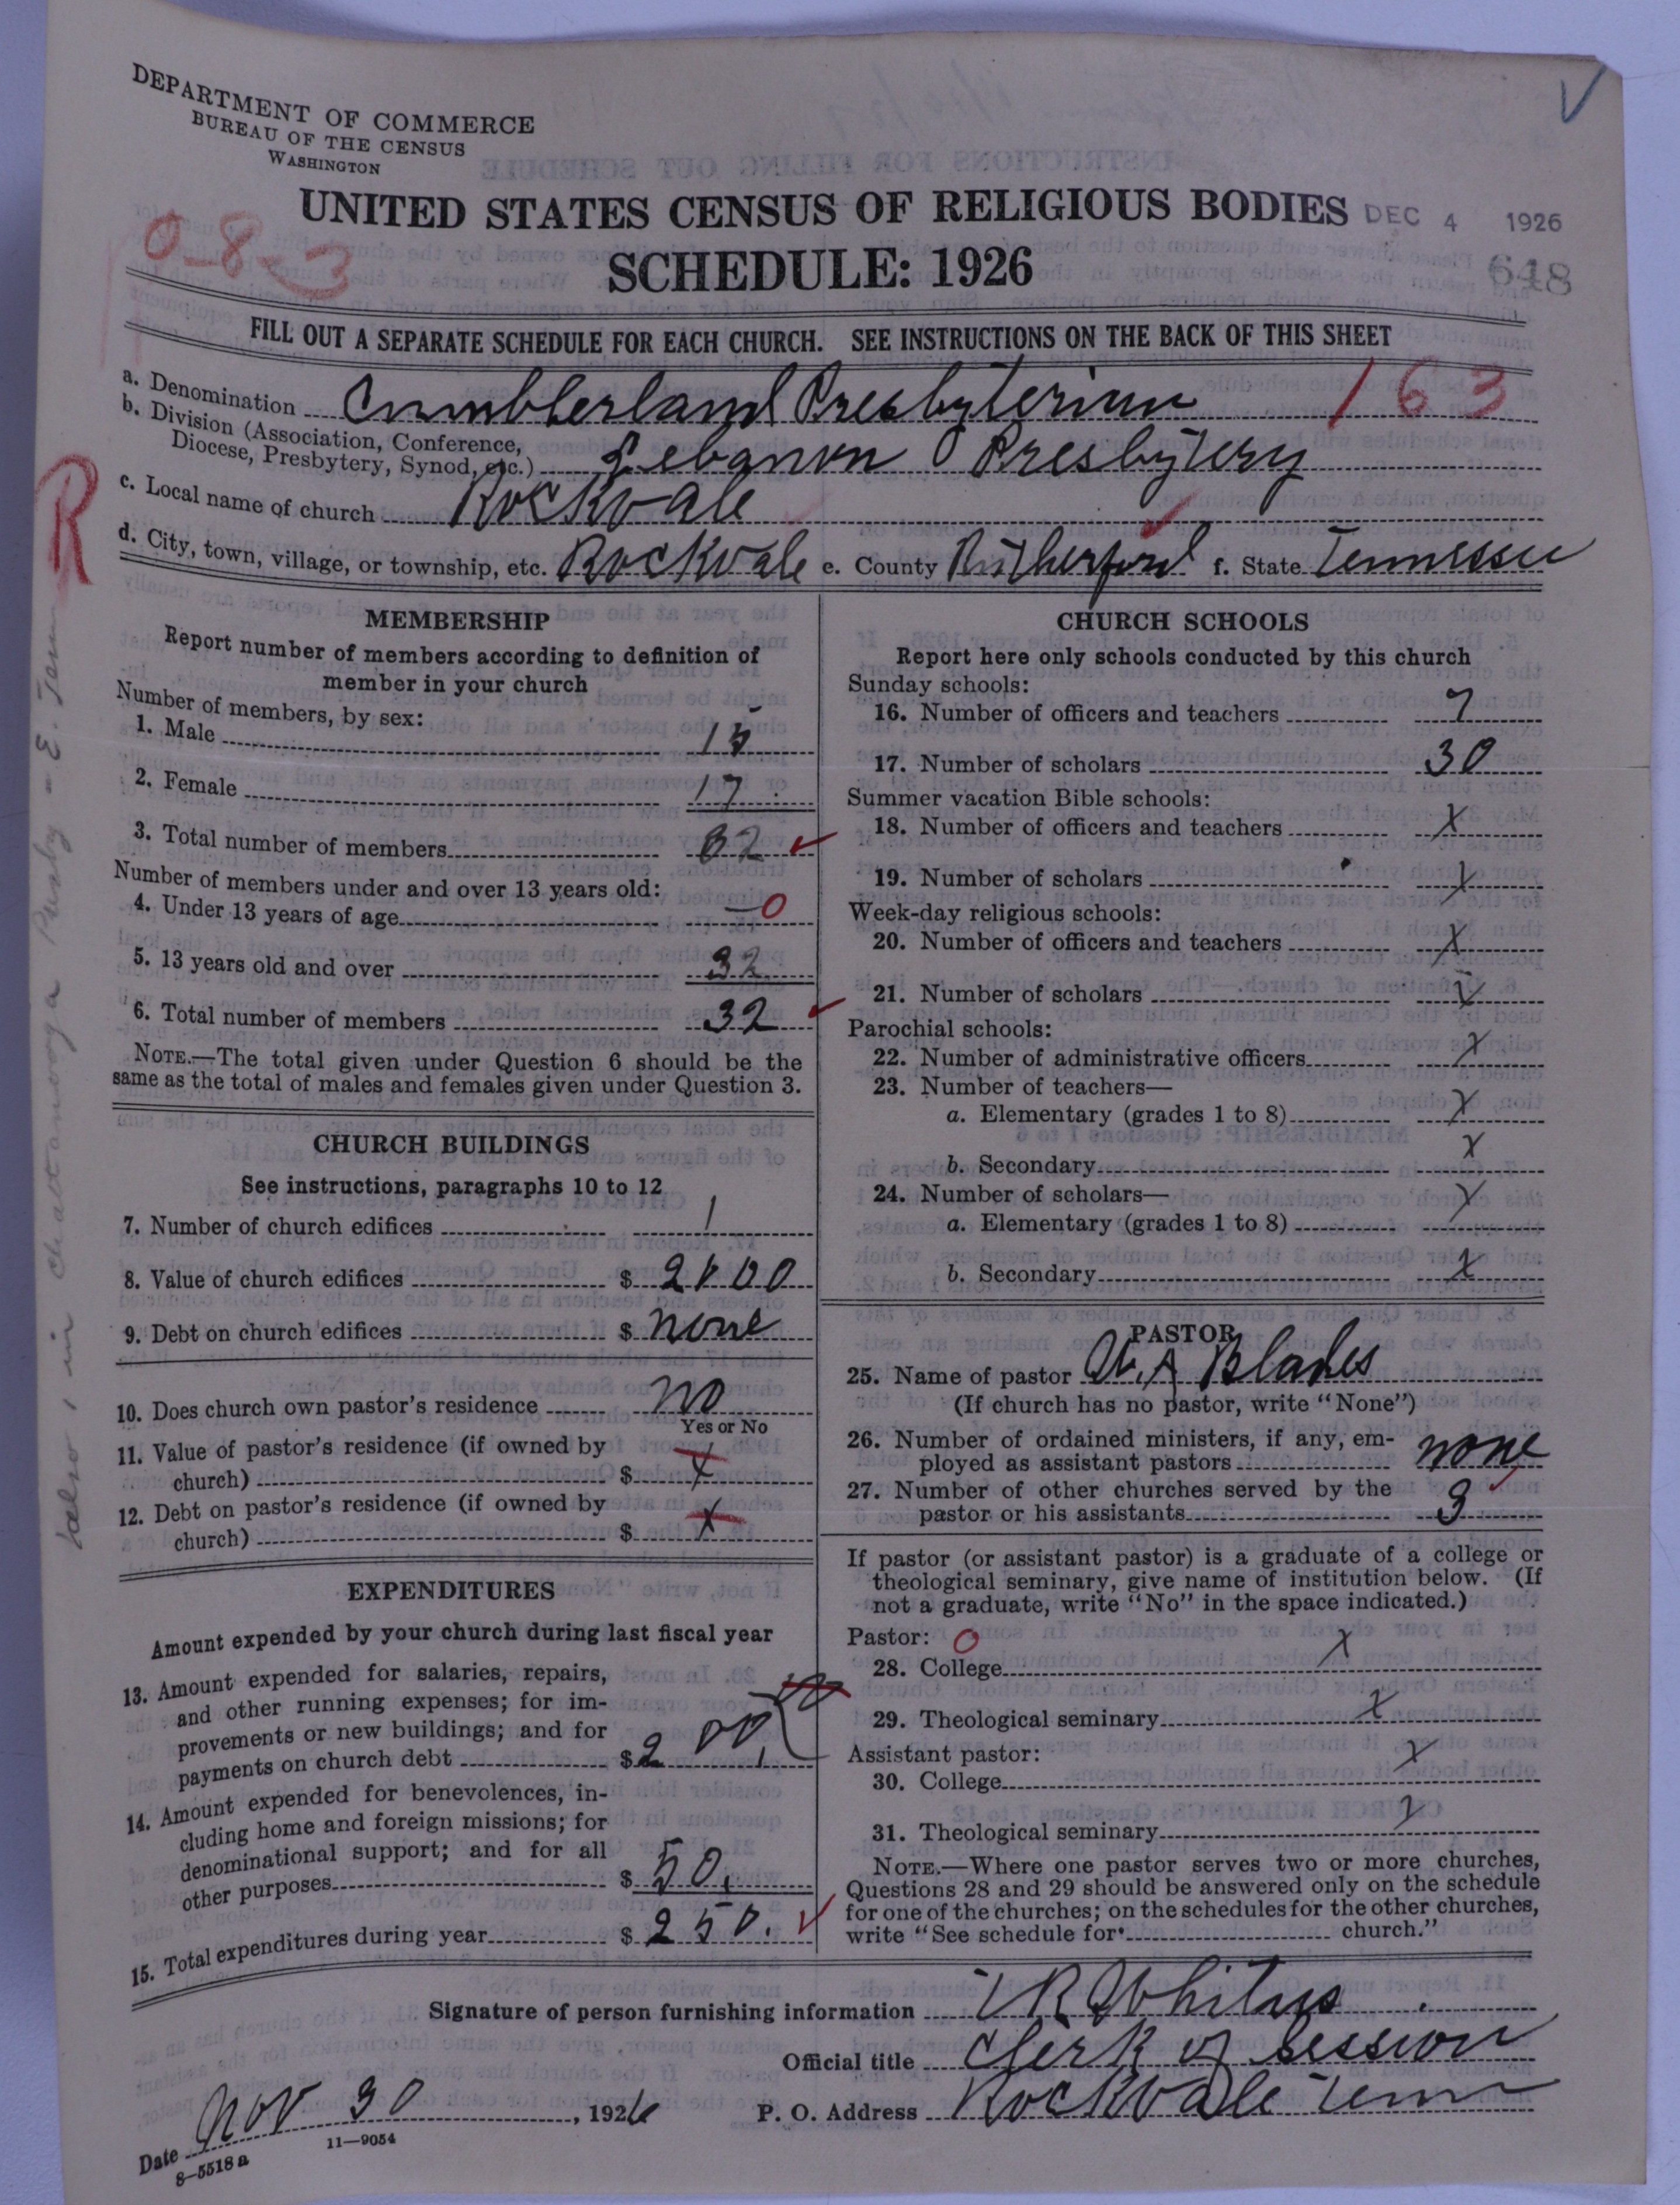 DEPARTMENT OF COMMERCE
BUREAU OF THE CENSUS
WASHINGTON
UNITED STATES CENSUS OF RELIGIOUS BODIES
DEC 4 1926
SCHEDULE: 1926
648
0-8-3
FILL OUT A SEPARATE SCHEDULE FOR EACH CHURCH. SEE INSTRUCTIONS ON THE BACK OF THIS SHEET
a. Denomination Cumberland Presbyterian 163
b. Division (Association, Conference,
Diocese, Presbytery, Synod, etc.) Lebanon Presbytery
R
c. Local name of church Rockvale
d. City, town, village, or township, etc. Rockvale e. County Rutherford f. State Tennessee
MEMBERSHIP
Report number of members according to definition of
member in your church
Number of members, by sex:
1. Male 15
2. Female 17
3. Total number of members 32
Number of members under and over 13 years old:
4. Under 13 years of age — 0
5. 13 years old and over 32
6. Total number of members 32
NOTE.—The total given under Question 6 should be the
same as the total of males and females given under Question 3.
CHURCH BUILDINGS
See instructions, paragraphs 10 to 12
7. Number of church edifices 1
8. Value of church edifices $ 2000
9. Debt on church edifices $ none
10. Does church own pastor's residence no
Yes or No
11. Value of pastor's residence (if owned by
church) $ x
12. Debt on pastor's residence (if owned by
church) $ x
EXPENDITURES
Amount expended by your church during last fiscal year
13. Amount expended for salaries, repairs,
and other running expenses; for im-
provements or new buildings; and for
payments on church debt $ 200.
14. Amount expended for benevolences, in-
cluding home and foreign missions; for
denominational support; and for all
other purposes $ 50.
15. Total expenditures during year $ 250.
CHURCH SCHOOLS
Report here only schools conducted by this church
Sunday schools:
16. Number of officers and teachers 7
17. Number of scholars 30
Summer vacation Bible schools:
18. Number of officers and teachers x
19. Number of scholars x
Week-day religious schools:
20. Number of officers and teachers x
21. Number of scholars x
Parochial schools:
22. Number of administrative officers x
23. Number of teachers—
a. Elementary (grades 1 to 8) x
b. Secondary x
24. Number of scholars— x
a. Elementary (grades 1 to 8)
b. Secondary x
PASTOR
25. Name of pastor W. A Blakes
(If church has no pastor, write "None")
26. Number of ordained ministers, if any, em-
ployed as assistant pastors none
27. Number of other churches served by the
pastor or his assistants 3
If pastor (or assistant pastor) is a graduate of a college or
theological seminary, give name of institution below. (If
not a graduate, write "No" in the space indicated.)
Pastor: 0
28. College x
29. Theological seminary x
Assistant pastor:
30. College x
31. Theological seminary x
NOTE.—Where one pastor serves two or more churches,
Questions 28 and 29 should be answered only on the schedule
for one of the churches; on the schedules for the other churches,
write "See schedule for church."
Signature of person furnishing information Whitus
Official title Clerk of Session
Date Nov 30, 1926 P. O. Address Rockvale Tenn
11—9054
8—5518 a
also 1 in Chattanooga Presby - E. Tenn